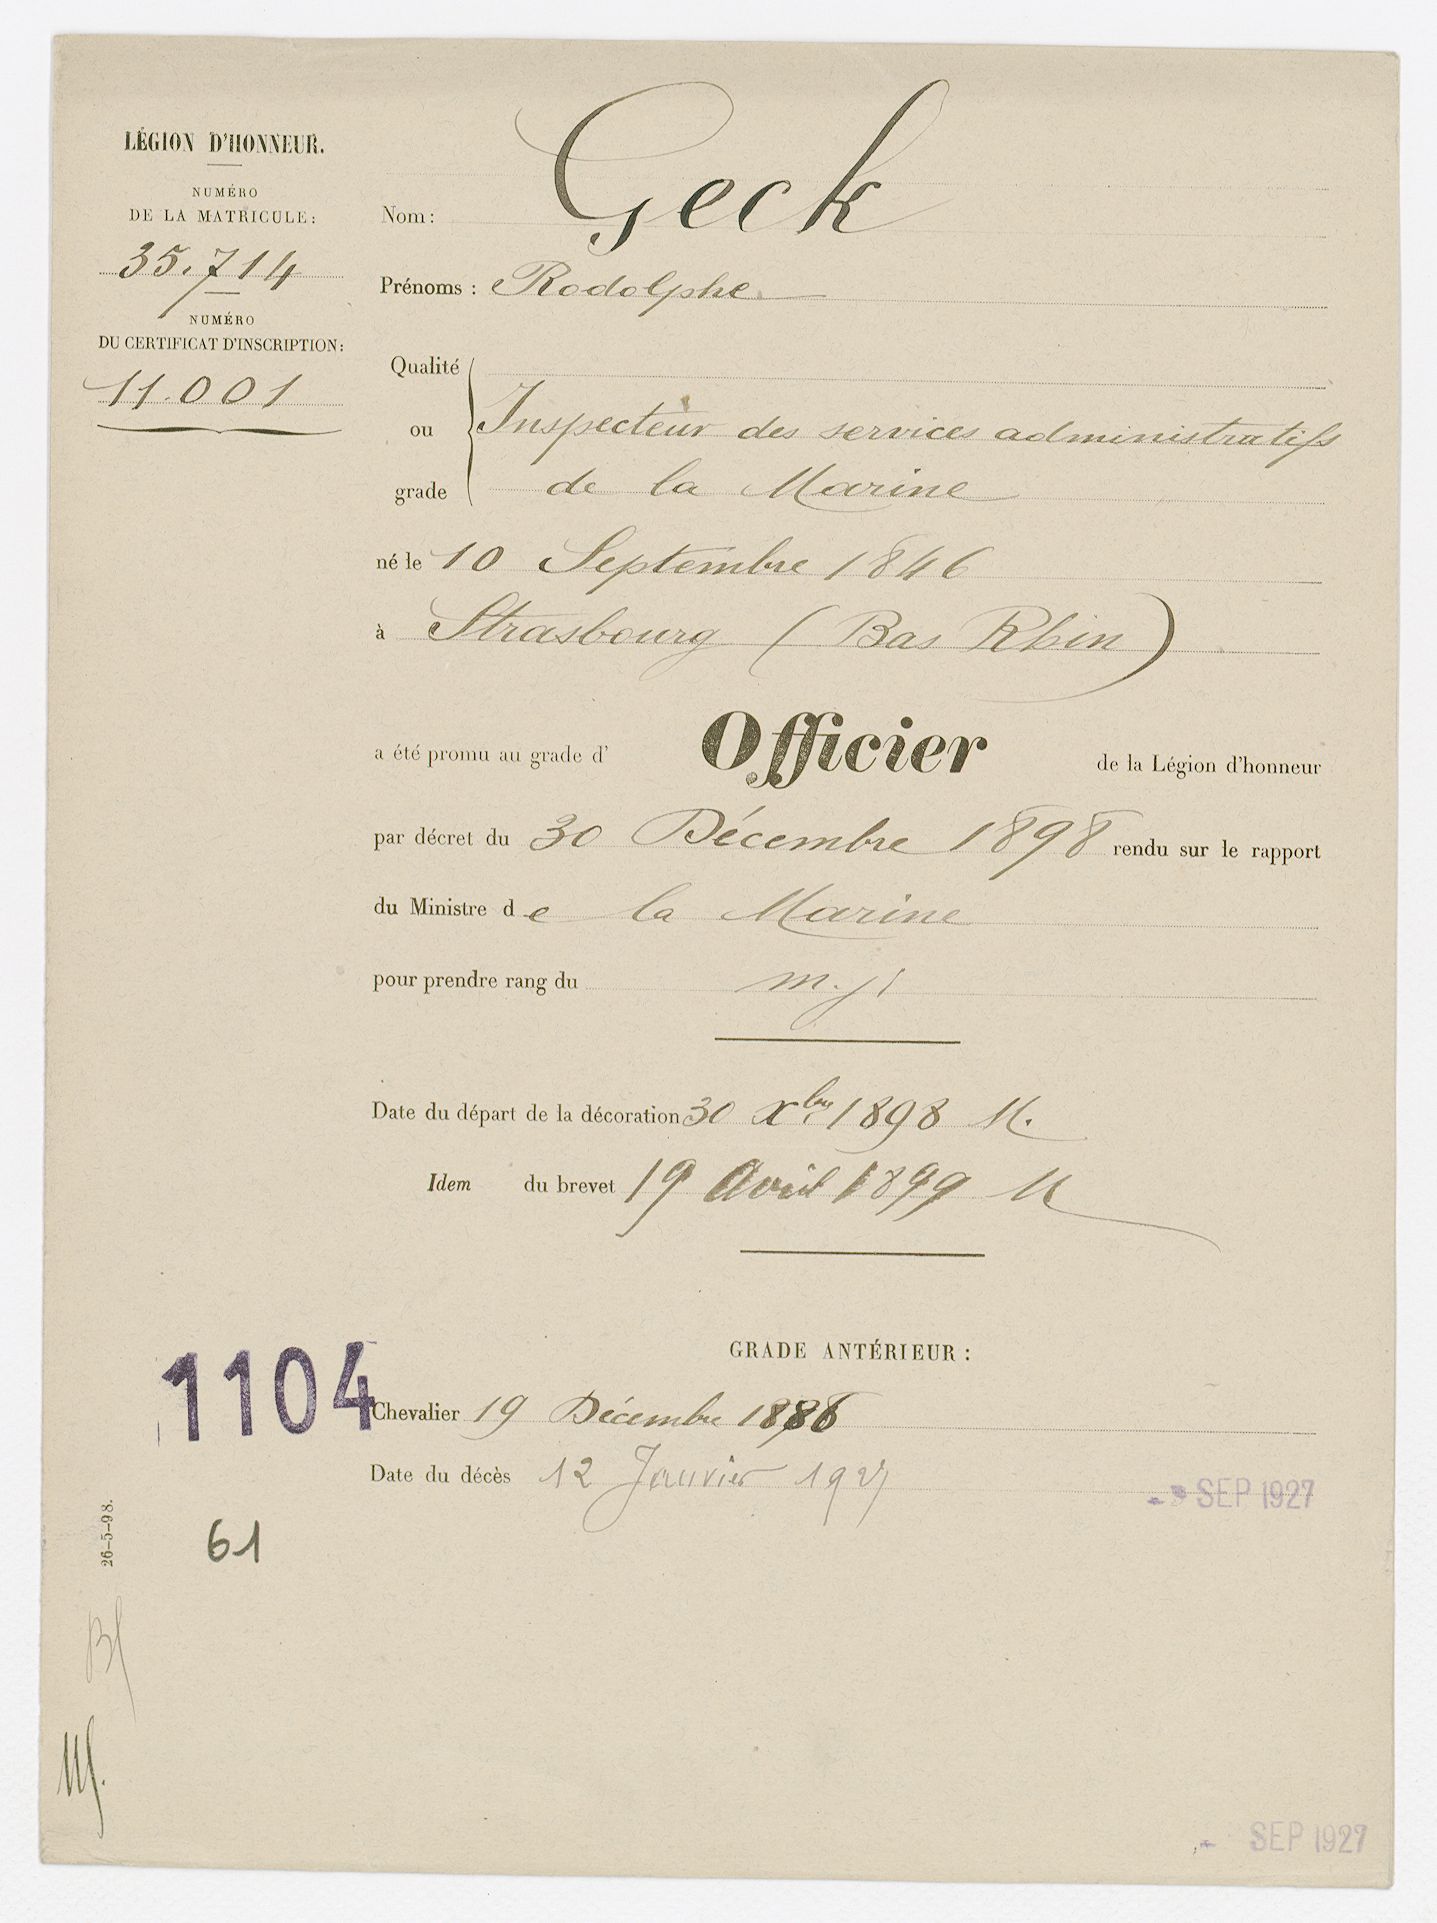 LÉGION D'HONNEUR.
NUMÉRO
DE LA MATRICULE:
35.714
NUMÉRO
DU CERTIFICAT D'INSCRIPTION:
11.001
Nom: Geck
Prénoms: Rodolphe
Qualité
ou
grade
Inspecteur des services administratifs
de la Marine
né le 10 Septembre 1846
à Strasbourg (Bas Rhin)
a été promu au grade d' Officier de la Légion d'honneur
par décret du 30 Décembre 1898 rendu sur le rapport
du Ministre de la Marine
pour prendre rang du m. jr
Date du départ de la décoration 30 Xbre 1898 M.
Idem du brevet 19 Avril 1899 M
GRADE ANTÉRIEUR:
1104
Chevalier 19 Décembre 1886
Date du décès 12 Janvier 1927
SEP 1927
26-5-98.
61
SEP 1927